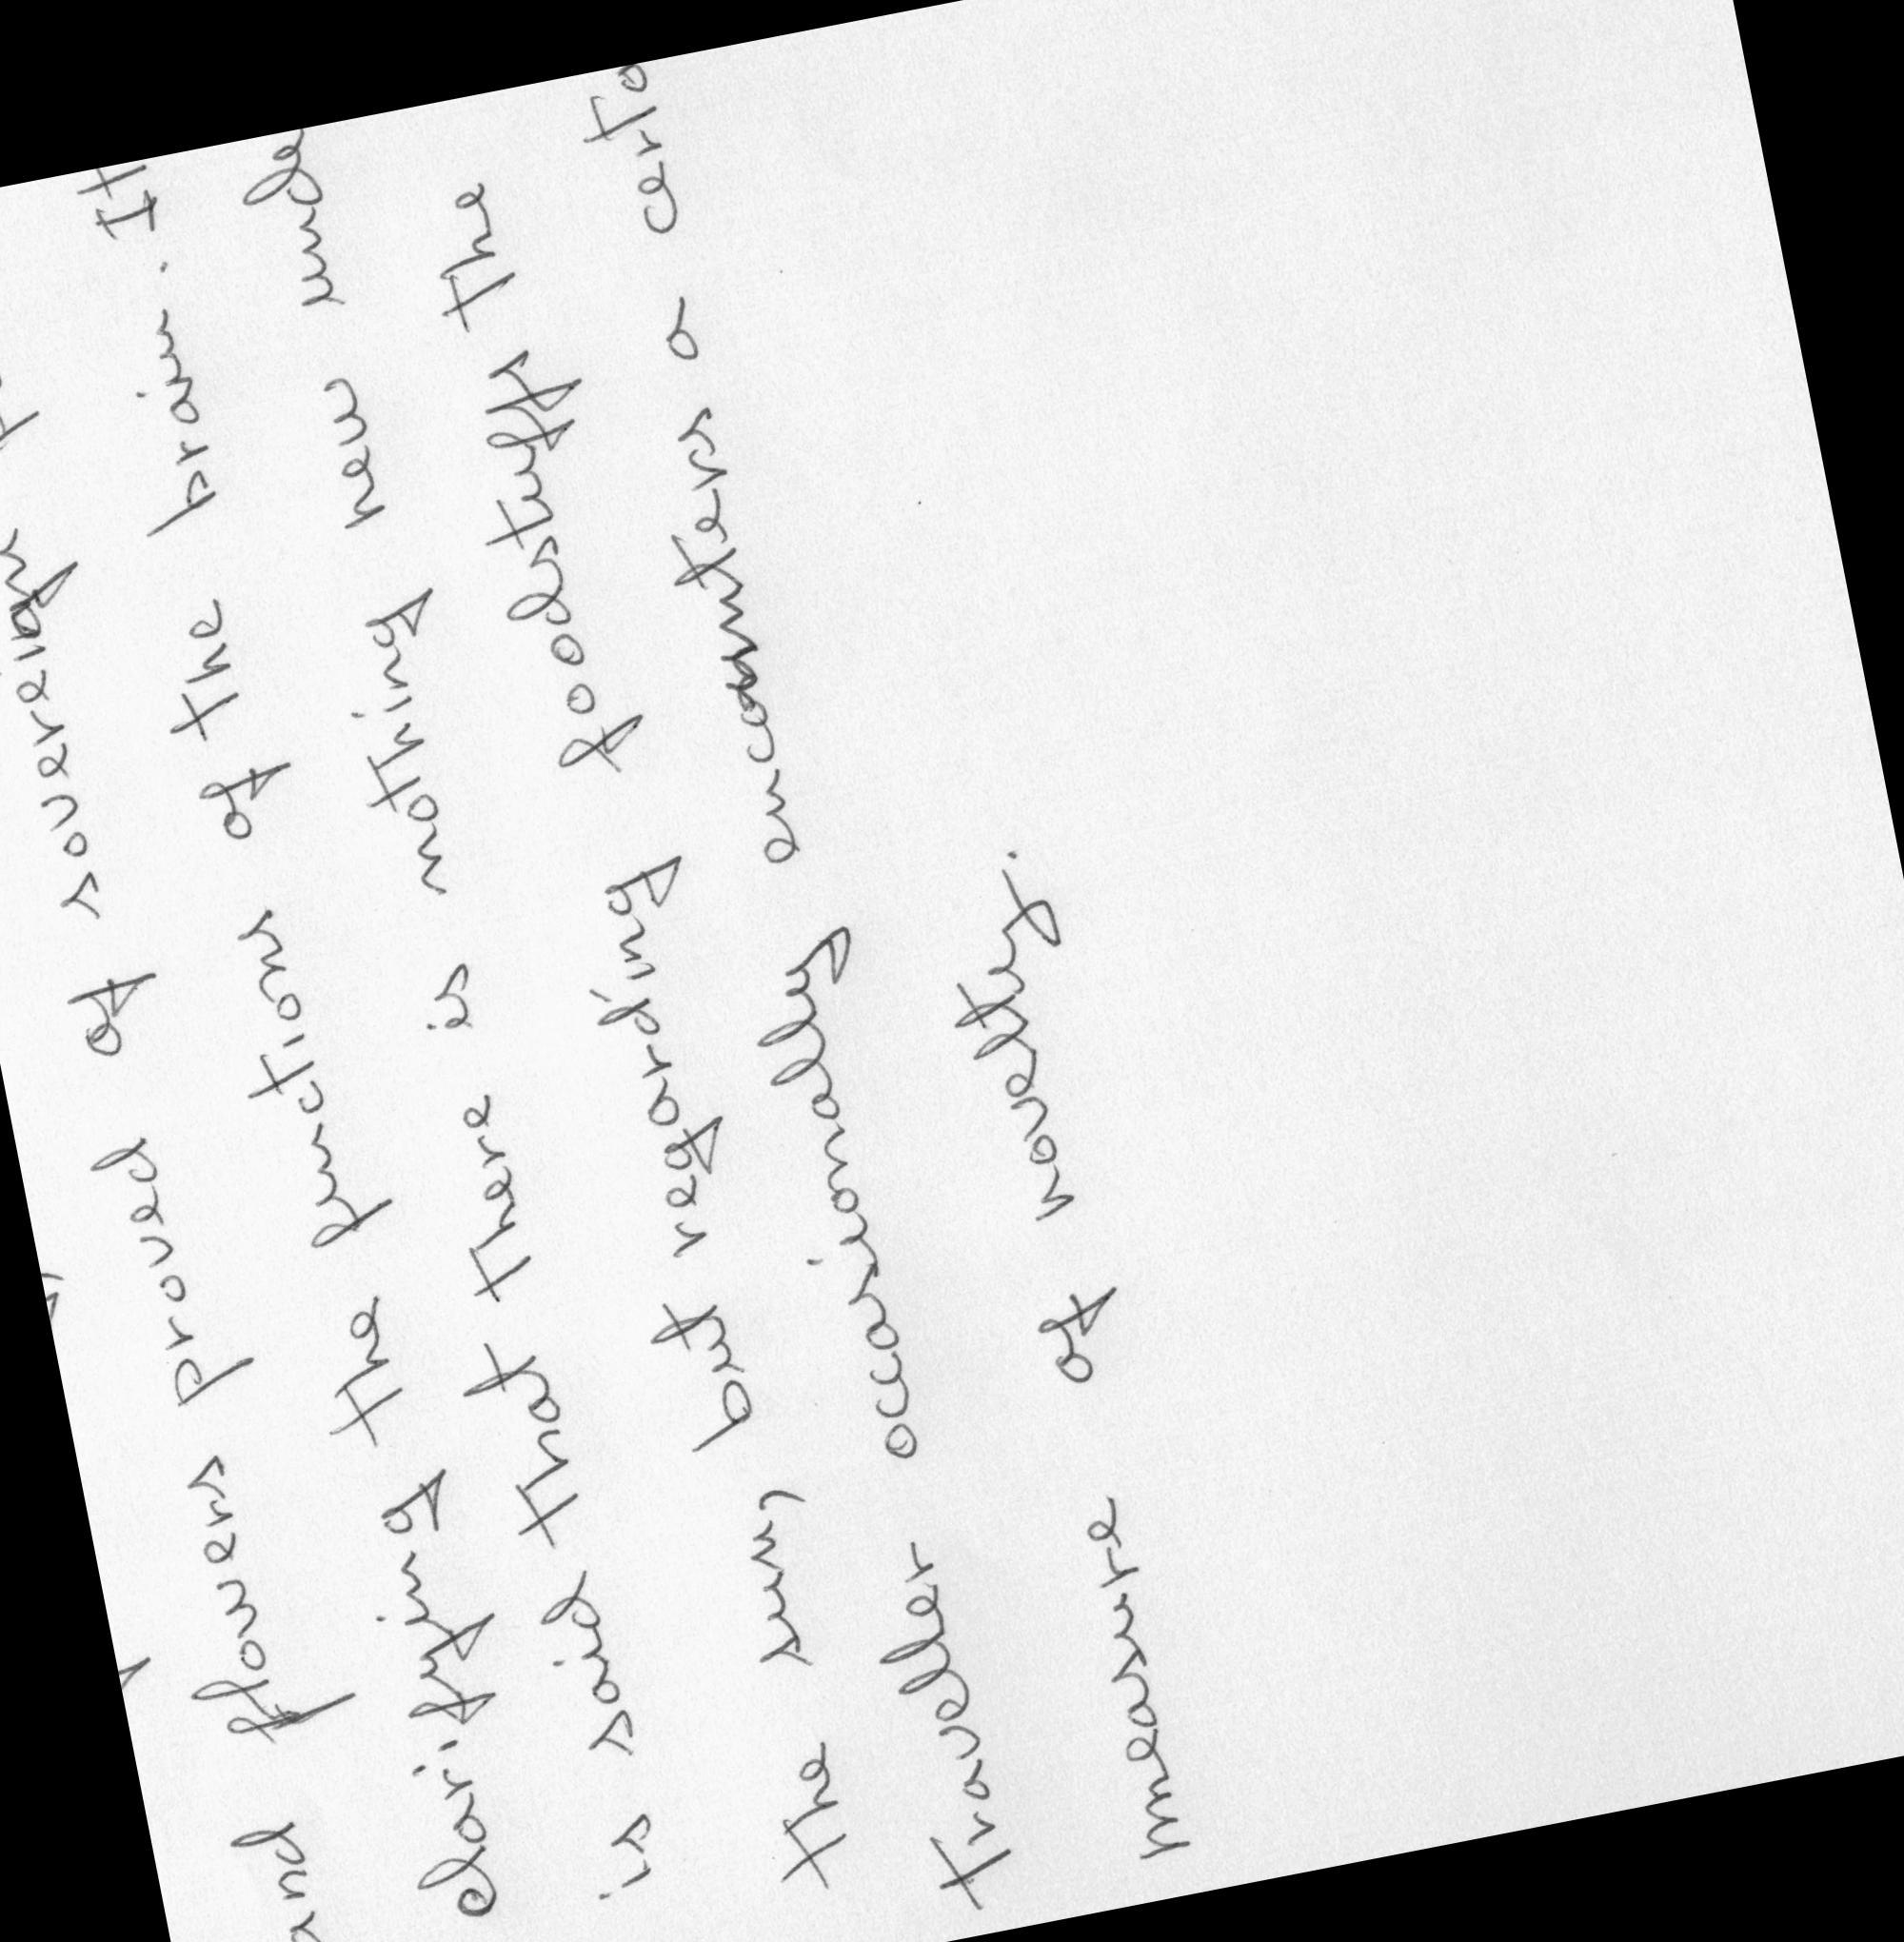 and flowers proved of sovereign
clarifying the functions of the brain. It
is said that there is nothing new under
the sun, but regarding foodstuffs the
traveller occasionally encounters a
measure of novelty.